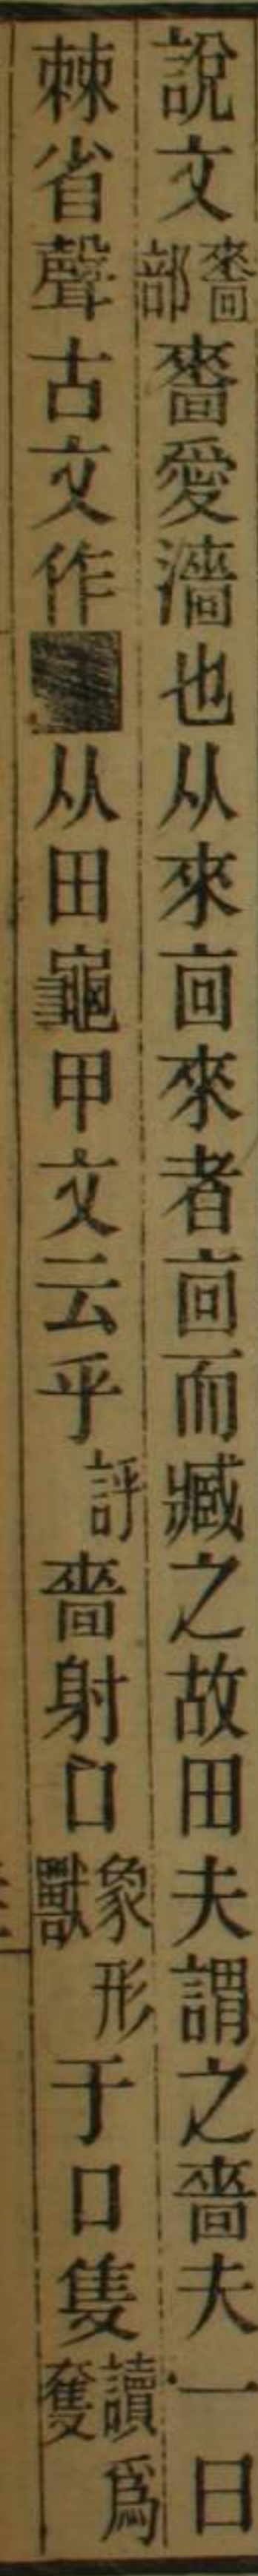 說文嗇部嗇愛濇也从來㐭來者㐭而臧之故田夫謂之嗇夫一曰
棘省聲古文作从田龜甲文云乎評嗇射口象形獸于口隻讀爲奪